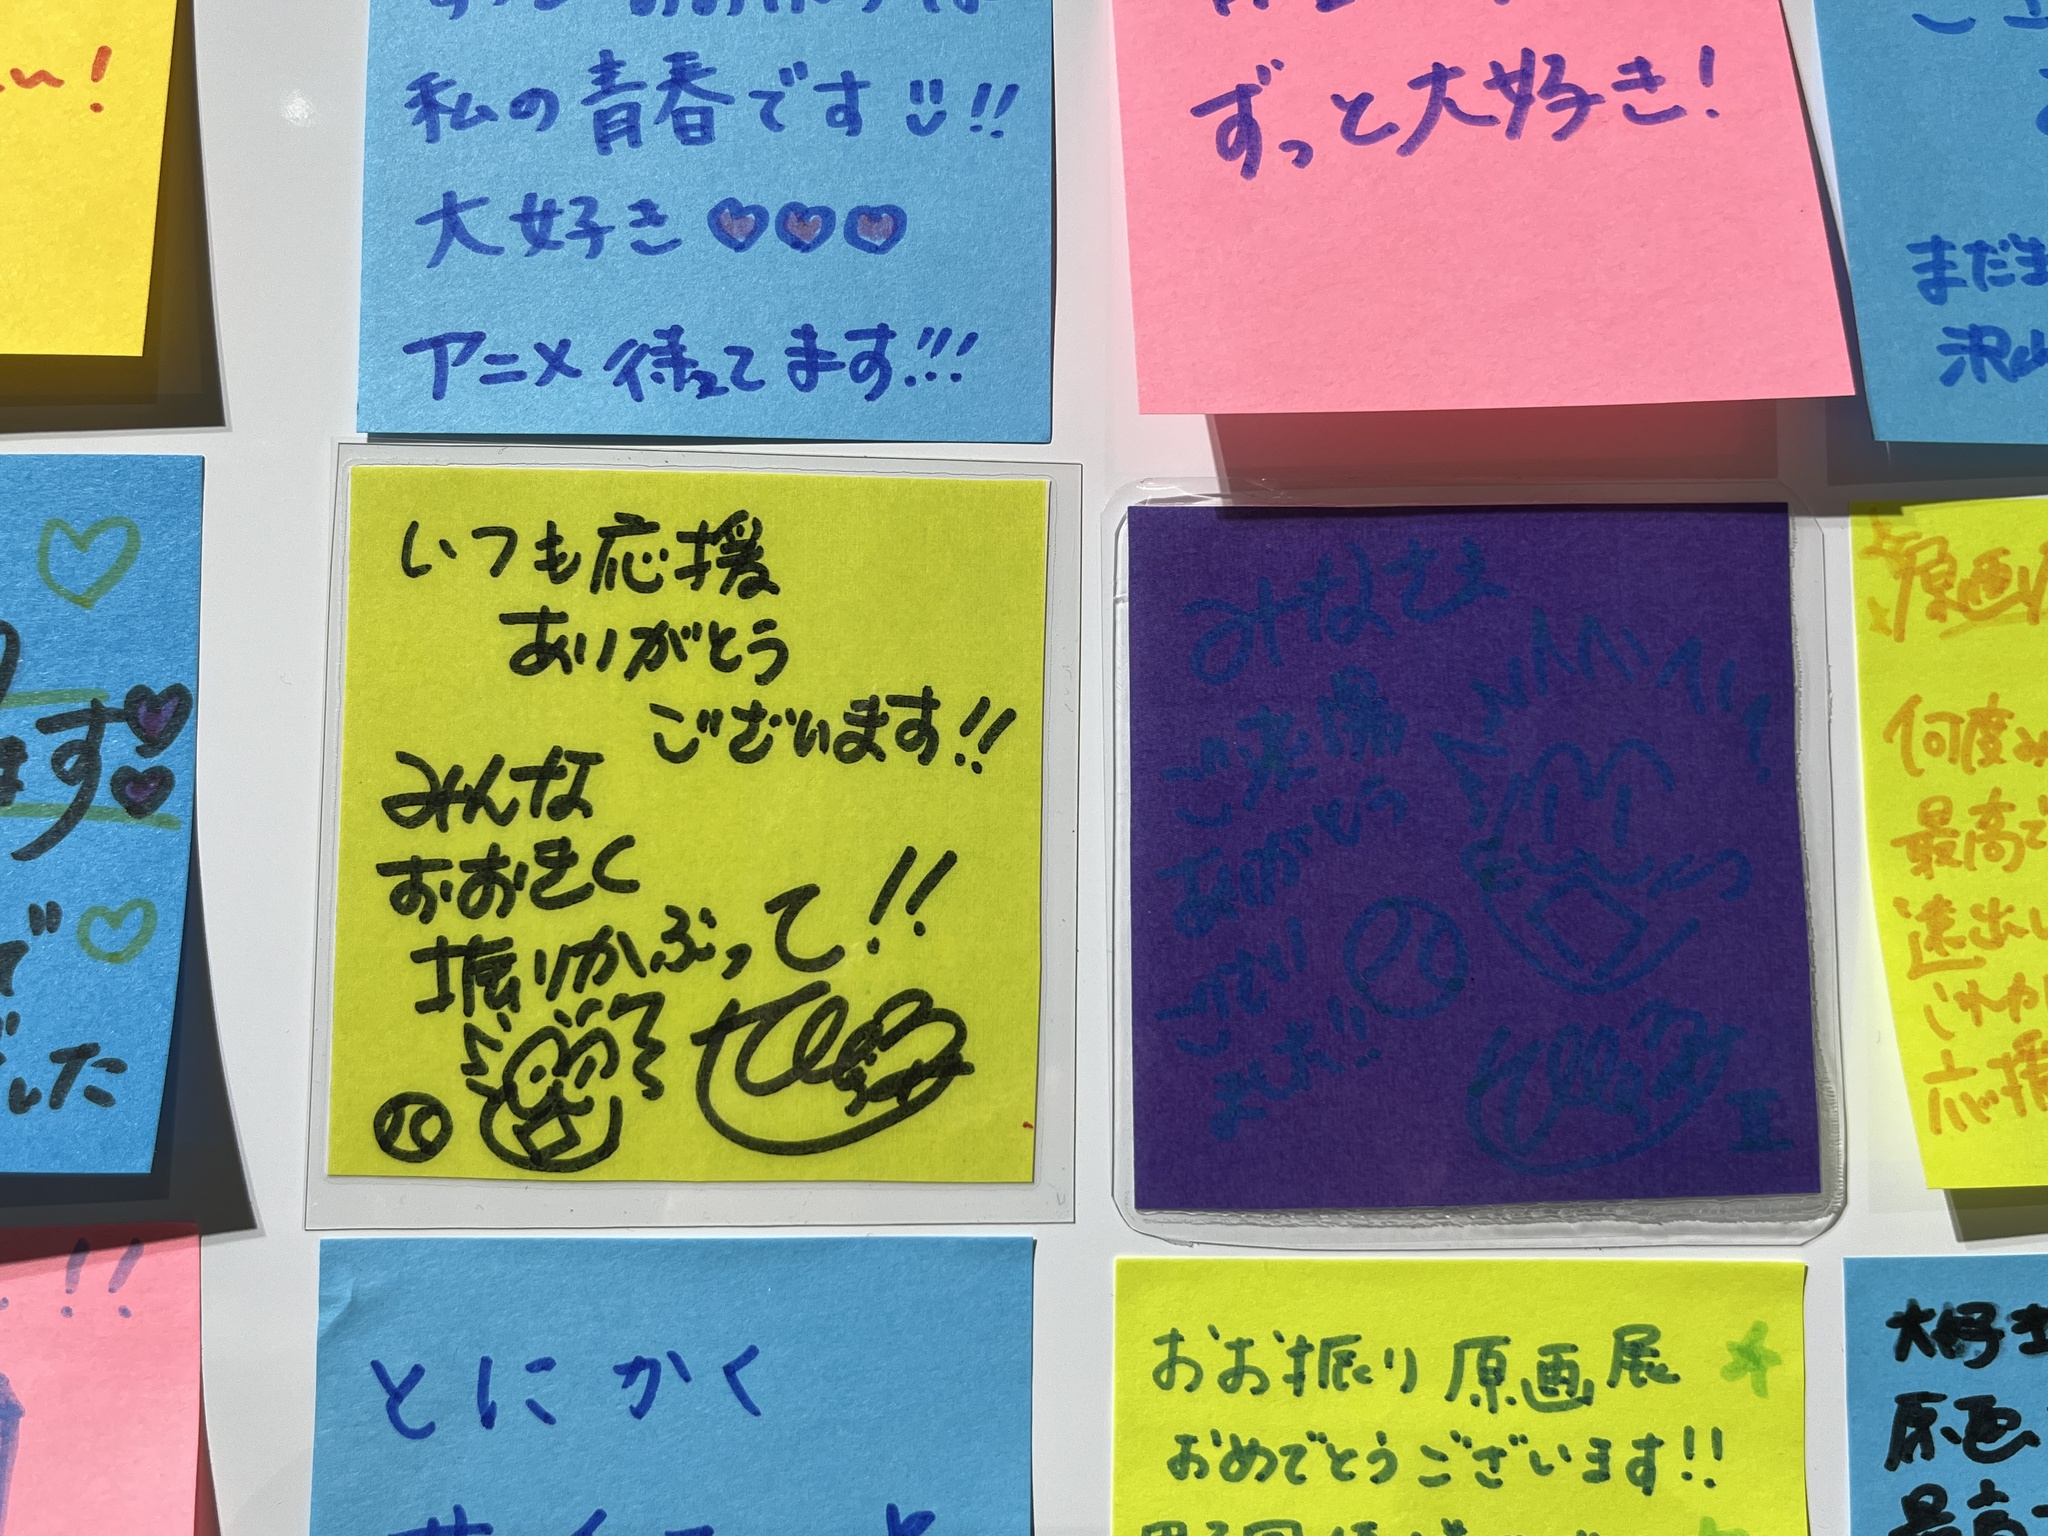 私の青春です!!
大好き♡♡♡
アニメ待ってます!!!
ずっと大好き!
まだま
沢山
ます
で
した
いつも応援
ありがとう
ございます!!
みんな
おおきく
振りかぶって!!
みなさま
ご来場
ありがとう
ござい
ました!!
II
原画
何度み
最高で
遠出し
応援
!!
とにかく
おお振り原画展
おめでとうございます!!
大好き
原画
最高